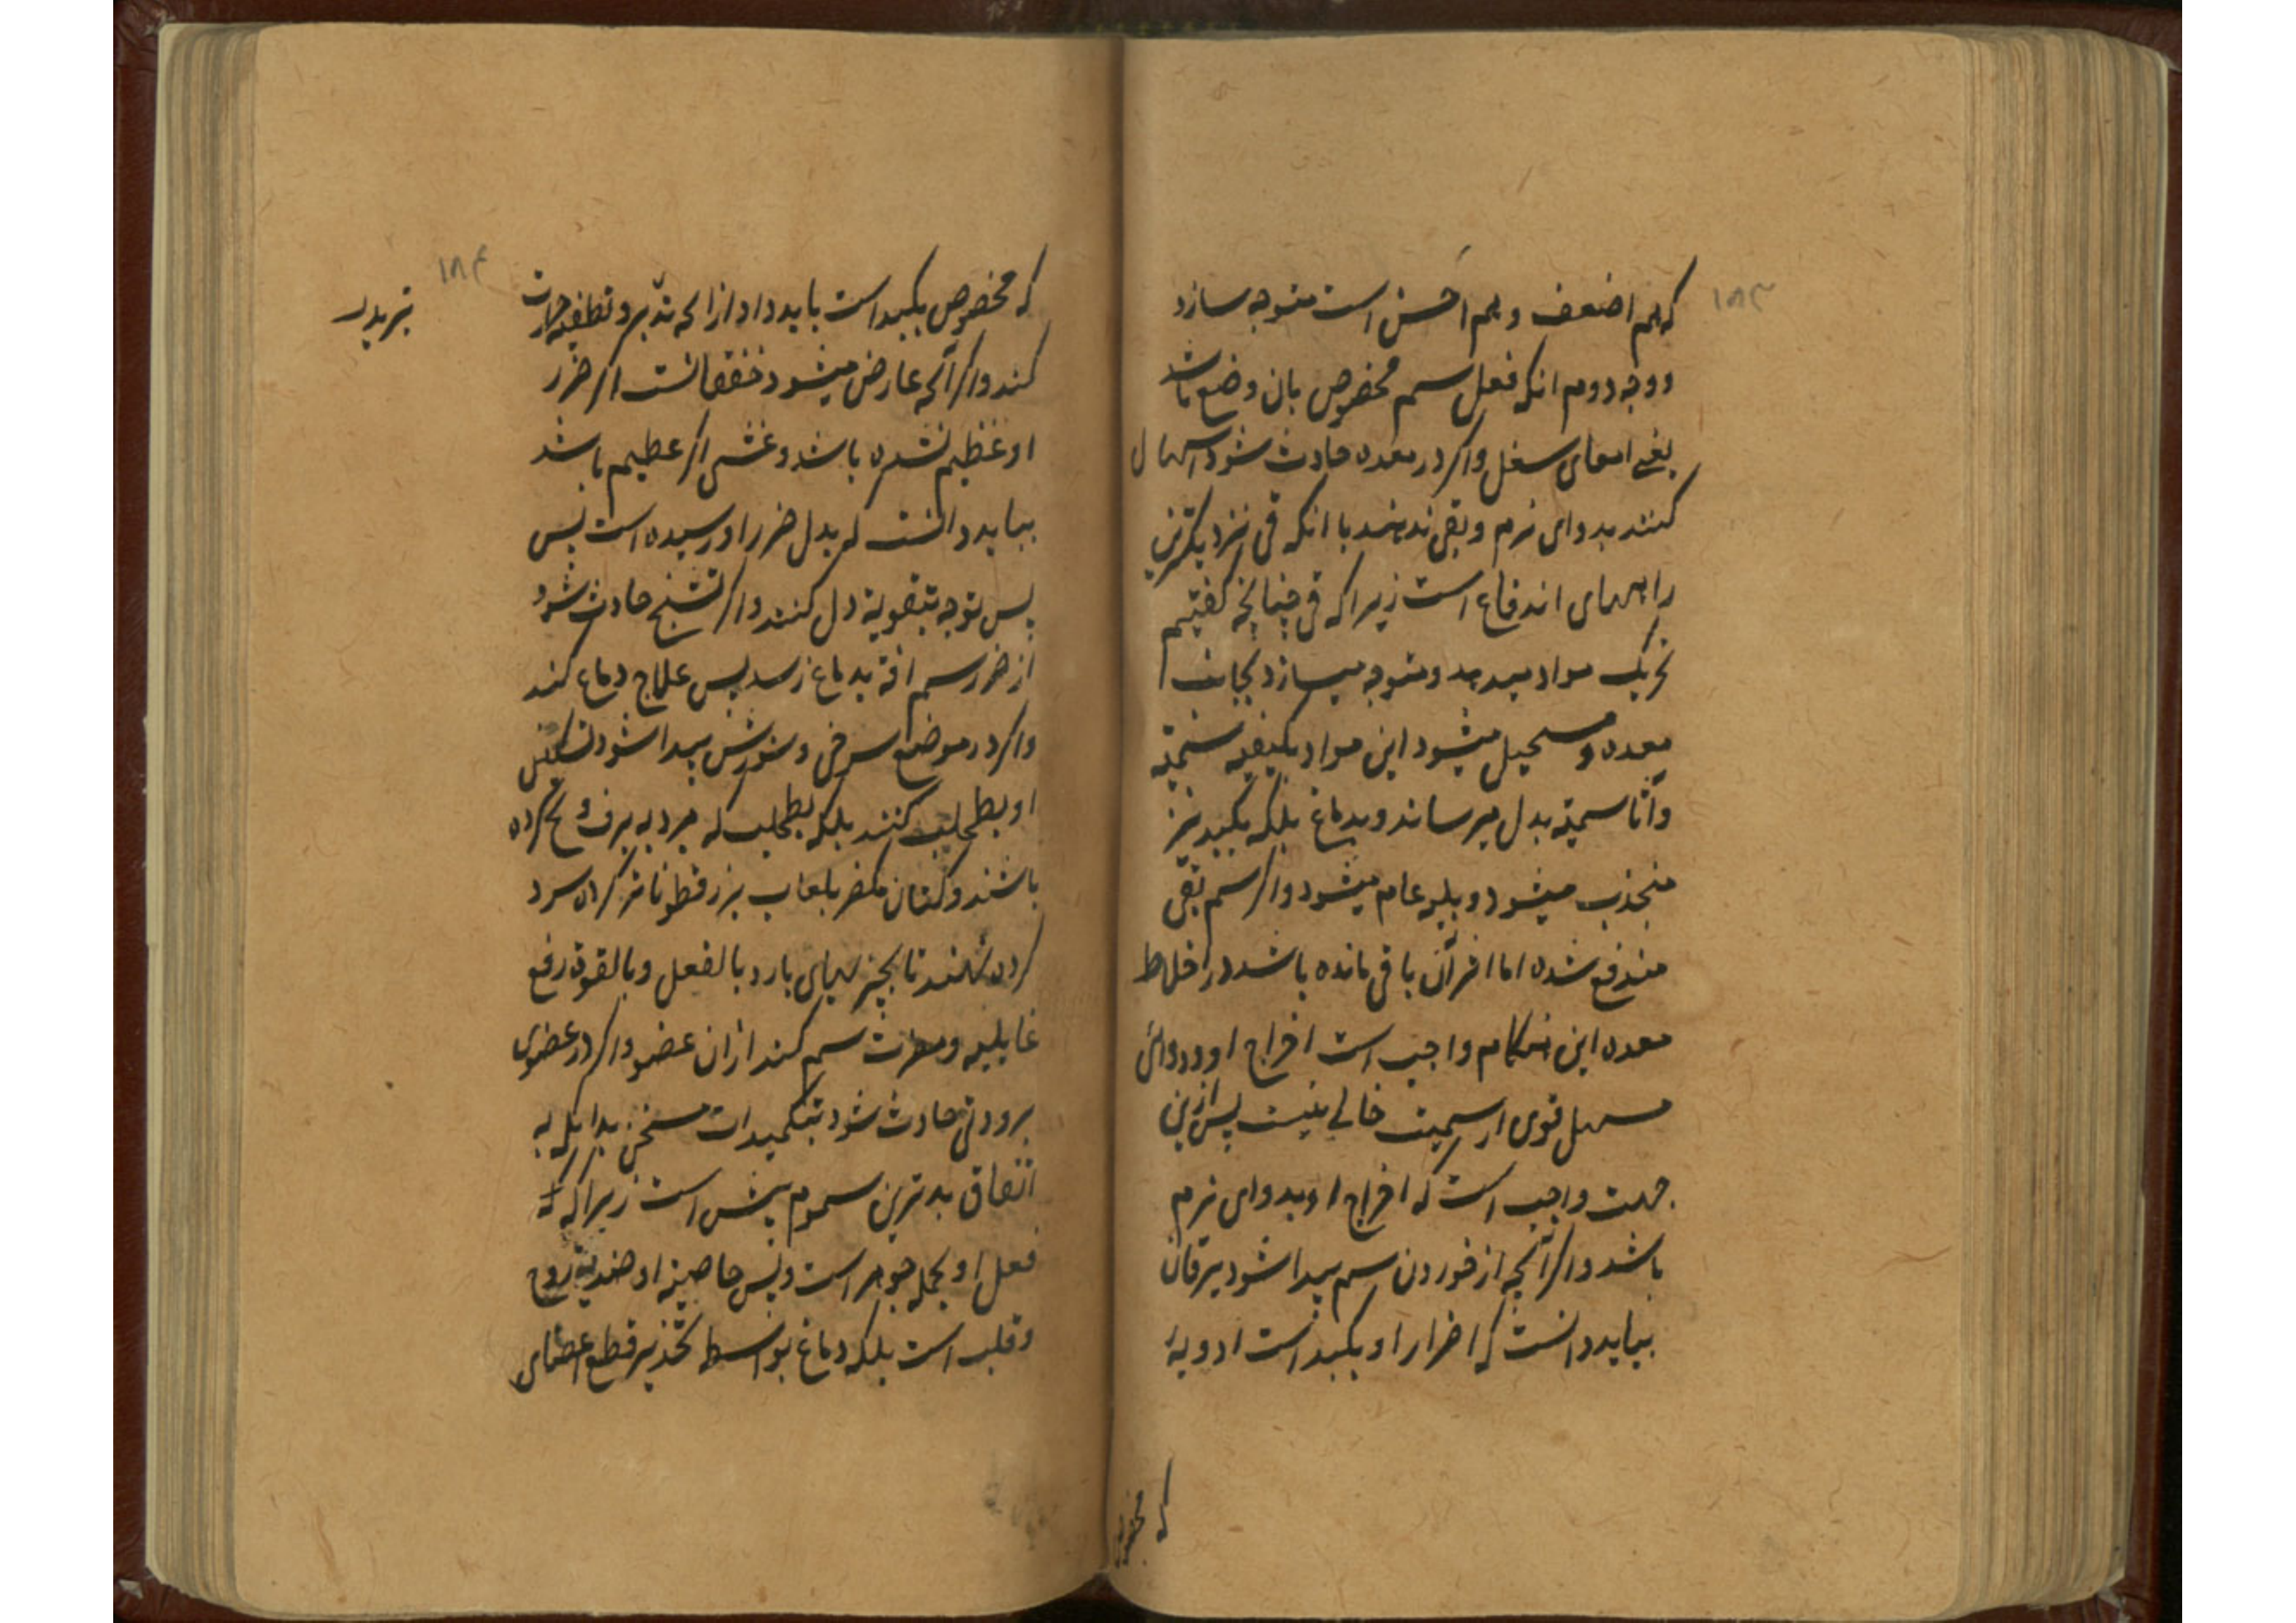 ۱۸۳
که هم اضعف و هم اخس است متوجه سازد
و وجه دوم انکه فعل سم مخصوص بان وضع باشد
یعنی امعای سفل واکر در معده حادث شود اسهال
کنند بدوای نرم و بقی ندهند با انکه قی نزدیکترین
راههای اندفاع است زیرا که قی چنانچه کفتیم
تحریک مواد میدهد و متوجه میسازد بجانب
معده و مستحیل میشود این مواد بکیفیه سمیّة
و آنا سمیّة بدل میرساند و بدماغ بلکه بکبد نیز
منجذب میشود و بلیه عام میشود و اکر سم بقی
مندفع شده اما اثر آن باقی مانده باشد در اخلاط
معده این هنکام واجب است اخراج او و دوائی
مسهل قوی از سمیت خالی نیست پس ازین
جهت واجب است که اخراج او بدوای نرم
باشد و اکر آنچه از خوردن سم پیدا شود یرقان
بباید دانست که اضرار او بکبد است ادویهٔ
که مخصوص
۱۸۴
که مخصوص بکبد است باید داد از انچه تدبیر و تطفیه حرارت
تبرید
کند و اکر آنچه عارض میشود خفقانست اکر ضرر
او عظیم نشده باشد و غشی اکر عظیم باشد
بباید دانست که بدل ضرر او رسیده است پس
پس توجه بتقویة دل کنند و اکر تشنج حادث شود
از ضرر سم افة بدماغ رسد پس علاج دماغ کنند
واکر در موضع سرخی و سوزش پیدا شود تسکین
او بطحلب کنند بلکه بطحلب که مبرد به برف و یخ کرده
باشند و کتان بلعاب بزرقطونا تر کرده سرد
کرده نهند تا بچیزهای بارد بالفعل و بالقوه رفع
غایلیه و مضرت سم کند ازان عضو واکر در عضوی
برودتی حادث شود بتکمیدات مسخن بدانکه به
اتفاق بدترین سموم بیش است زیرا که
فعل او بجمله جوهر است و پس خاصیة او ضدیة روح
و قلب است بلکه دماغ بواسطه تخدیر قطع اعضای